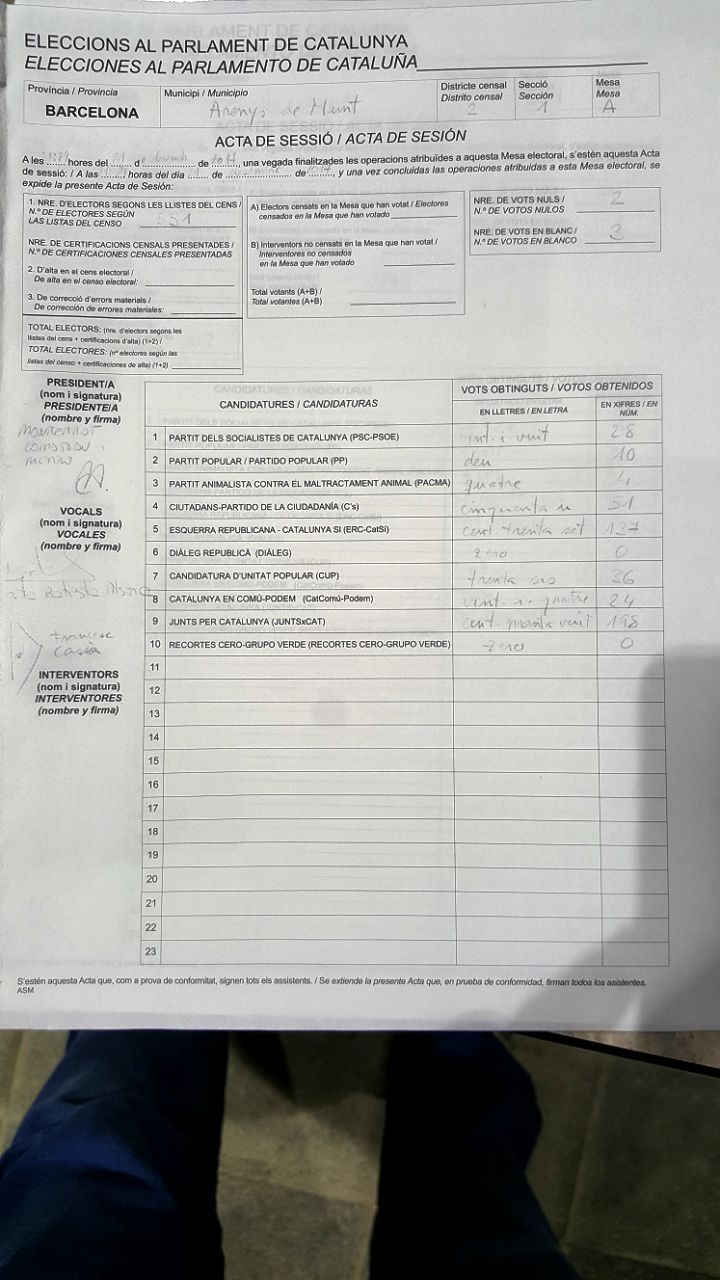 ELECCIONS AL PARLAMENT DE CATALUNYA
ELECCIONES AL PARLAMENTO DE CATALUÑA
Província / Provincia
BARCELONA
Municipi / Municipio
Arenys de Munt
Districte censal
Distrito censal
2
Secció
Sección
1
Mesa
Mesa
A
ACTA DE SESSIÓ / ACTA DE SESIÓN
A les hores del de de , una vegada finalitzades les operacions atribuïdes a aquesta Mesa electoral, s'estén aquesta Acta
de sessió: / A las horas del día de de , y una vez concluidas las operaciones atribuidas a esta Mesa electoral, se
expide la presente Acta de Sesión:
1. NRE. D'ELECTORS SEGONS LES LLISTES DEL CENS /
N.º DE ELECTORES SEGÚN
LAS LISTAS DEL CENSO 551
NRE. DE CERTIFICACIONS CENSALS PRESENTADES /
N.º DE CERTIFICACIONES CENSALES PRESENTADAS
2. D'alta en el cens electoral /
De alta en el censo electoral:
3. De correcció d'errors materials /
De corrección de errores materiales:
TOTAL ELECTORS: (nre. d'electors segons les
llistes del cens + certificacions d'alta) (1+2) /
TOTAL ELECTORES: (nº electores según las
listas del censo + certificaciones de alta) (1+2)
A) Electors censats en la Mesa que han votat / Electores
censados en la Mesa que han votado
B) Interventors no censats en la Mesa que han votat /
Interventores no censados
en la Mesa que han votado
Total votants (A+B) /
Total votantes (A+B)
NRE. DE VOTS NULS /
N.º DE VOTOS NULOS 2
NRE. DE VOTS EN BLANC /
N.º DE VOTOS EN BLANCO 3
PRESIDENT/A
(nom i signatura)
PRESIDENTE/A
(nombre y firma)
MONTSERRAT
VOCALS
(nom i signatura)
VOCALES
(nombre y firma)
Batista
Francesc
INTERVENTORS
(nom i signatura)
INTERVENTORES
(nombre y firma)
CANDIDATURES / CANDIDATURAS
VOTS OBTINGUTS / VOTOS OBTENIDOS
EN LLETRES / EN LETRA
EN XIFRES / EN
NÚM.
1 PARTIT DELS SOCIALISTES DE CATALUNYA (PSC-PSOE) vint-i-vuit 28
2 PARTIT POPULAR / PARTIDO POPULAR (PP) deu 10
3 PARTIT ANIMALISTA CONTRA EL MALTRACTAMENT ANIMAL (PACMA) quatre 4
4 CIUTADANS-PARTIDO DE LA CIUDADANÍA (C's) cinquanta u 51
5 ESQUERRA REPUBLICANA - CATALUNYA SÍ (ERC-CatSí) cent trenta set 137
6 DIÀLEG REPUBLICÀ (DIÀLEG) zero 0
7 CANDIDATURA D'UNITAT POPULAR (CUP) trenta sis 36
8 CATALUNYA EN COMÚ-PODEM (CatComú-Podem) vint-i-quatre 24
9 JUNTS PER CATALUNYA (JUNTSxCAT) cent vuit 198
10 RECORTES CERO-GRUPO VERDE (RECORTES CERO-GRUPO VERDE) zero 0
11
12
13
14
15
16
17
18
19
20
21
22
23
S'estén aquesta Acta que, com a prova de conformitat, signen tots els assistents. / Se extiende la presente Acta que, en prueba de conformidad, firman todos los asistentes.
ASM